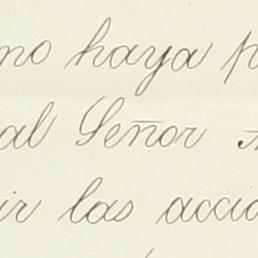 no haya p
al Señor
ir las accio